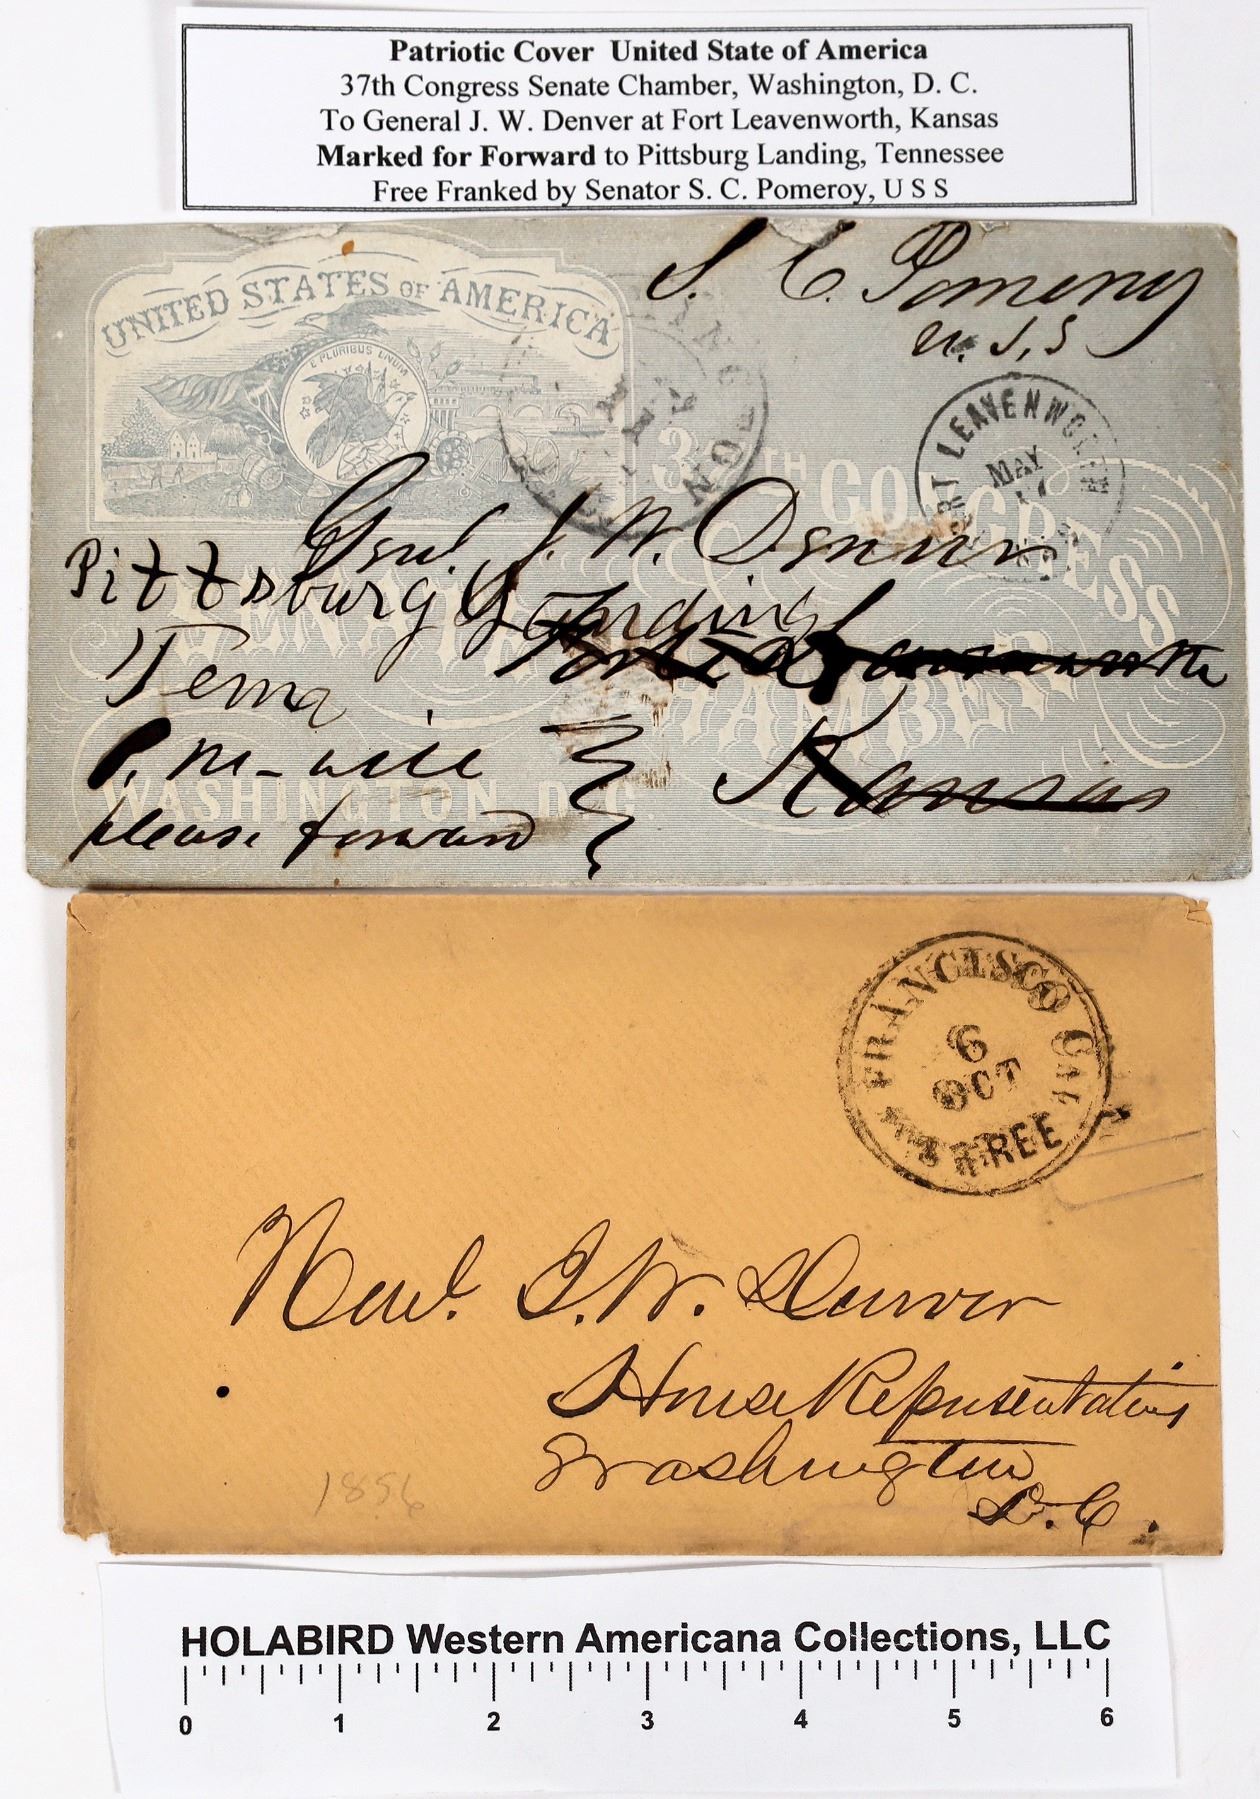 Patriotic Cover United State of America
37th Congress Senate Chamber, Washington, D. C.
To General J. W. Denver at Fort Leavenworth, Kansas
Marked for Forward to Pittsburg Landing, Tennessee
Free Franked by Senator S. C. Pomeroy, U S S
S. C. Pomeroy
U. S. S
UNITED STATES OF AMERICA
E PLURIBUS UNUM
WASHINGTON
MAY
FORT LEAVENWORTH
MAY
37TH CONGRESS
SENATE CHAMBER
WASHINGTON, D.C.
Genl. J. W. Denver
Pittsburg Landing
Fort Leavenworth
Tenna
Kansas
P. M. will
please forward
FRANCISCO CAL
6
OCT
FREE
J. W. Denver
House Representatives
Washington
D. C.
1856
HOLABIRD Western Americana Collections, LLC
0 1 2 3 4 5 6